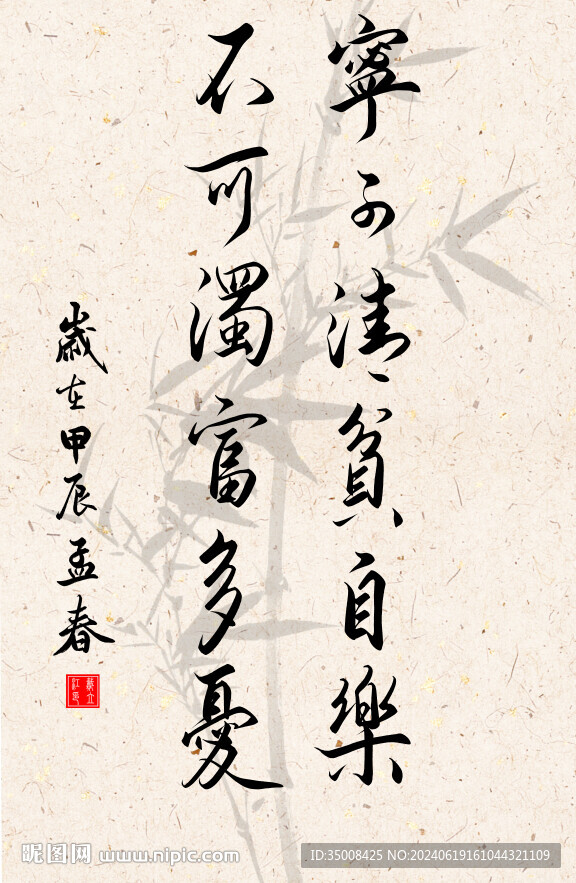 寧可清貧自樂
不可濁富多憂
歲在甲辰孟春
昵图网 www.nipic.com
ID:35008425 NO:20240619161044321109